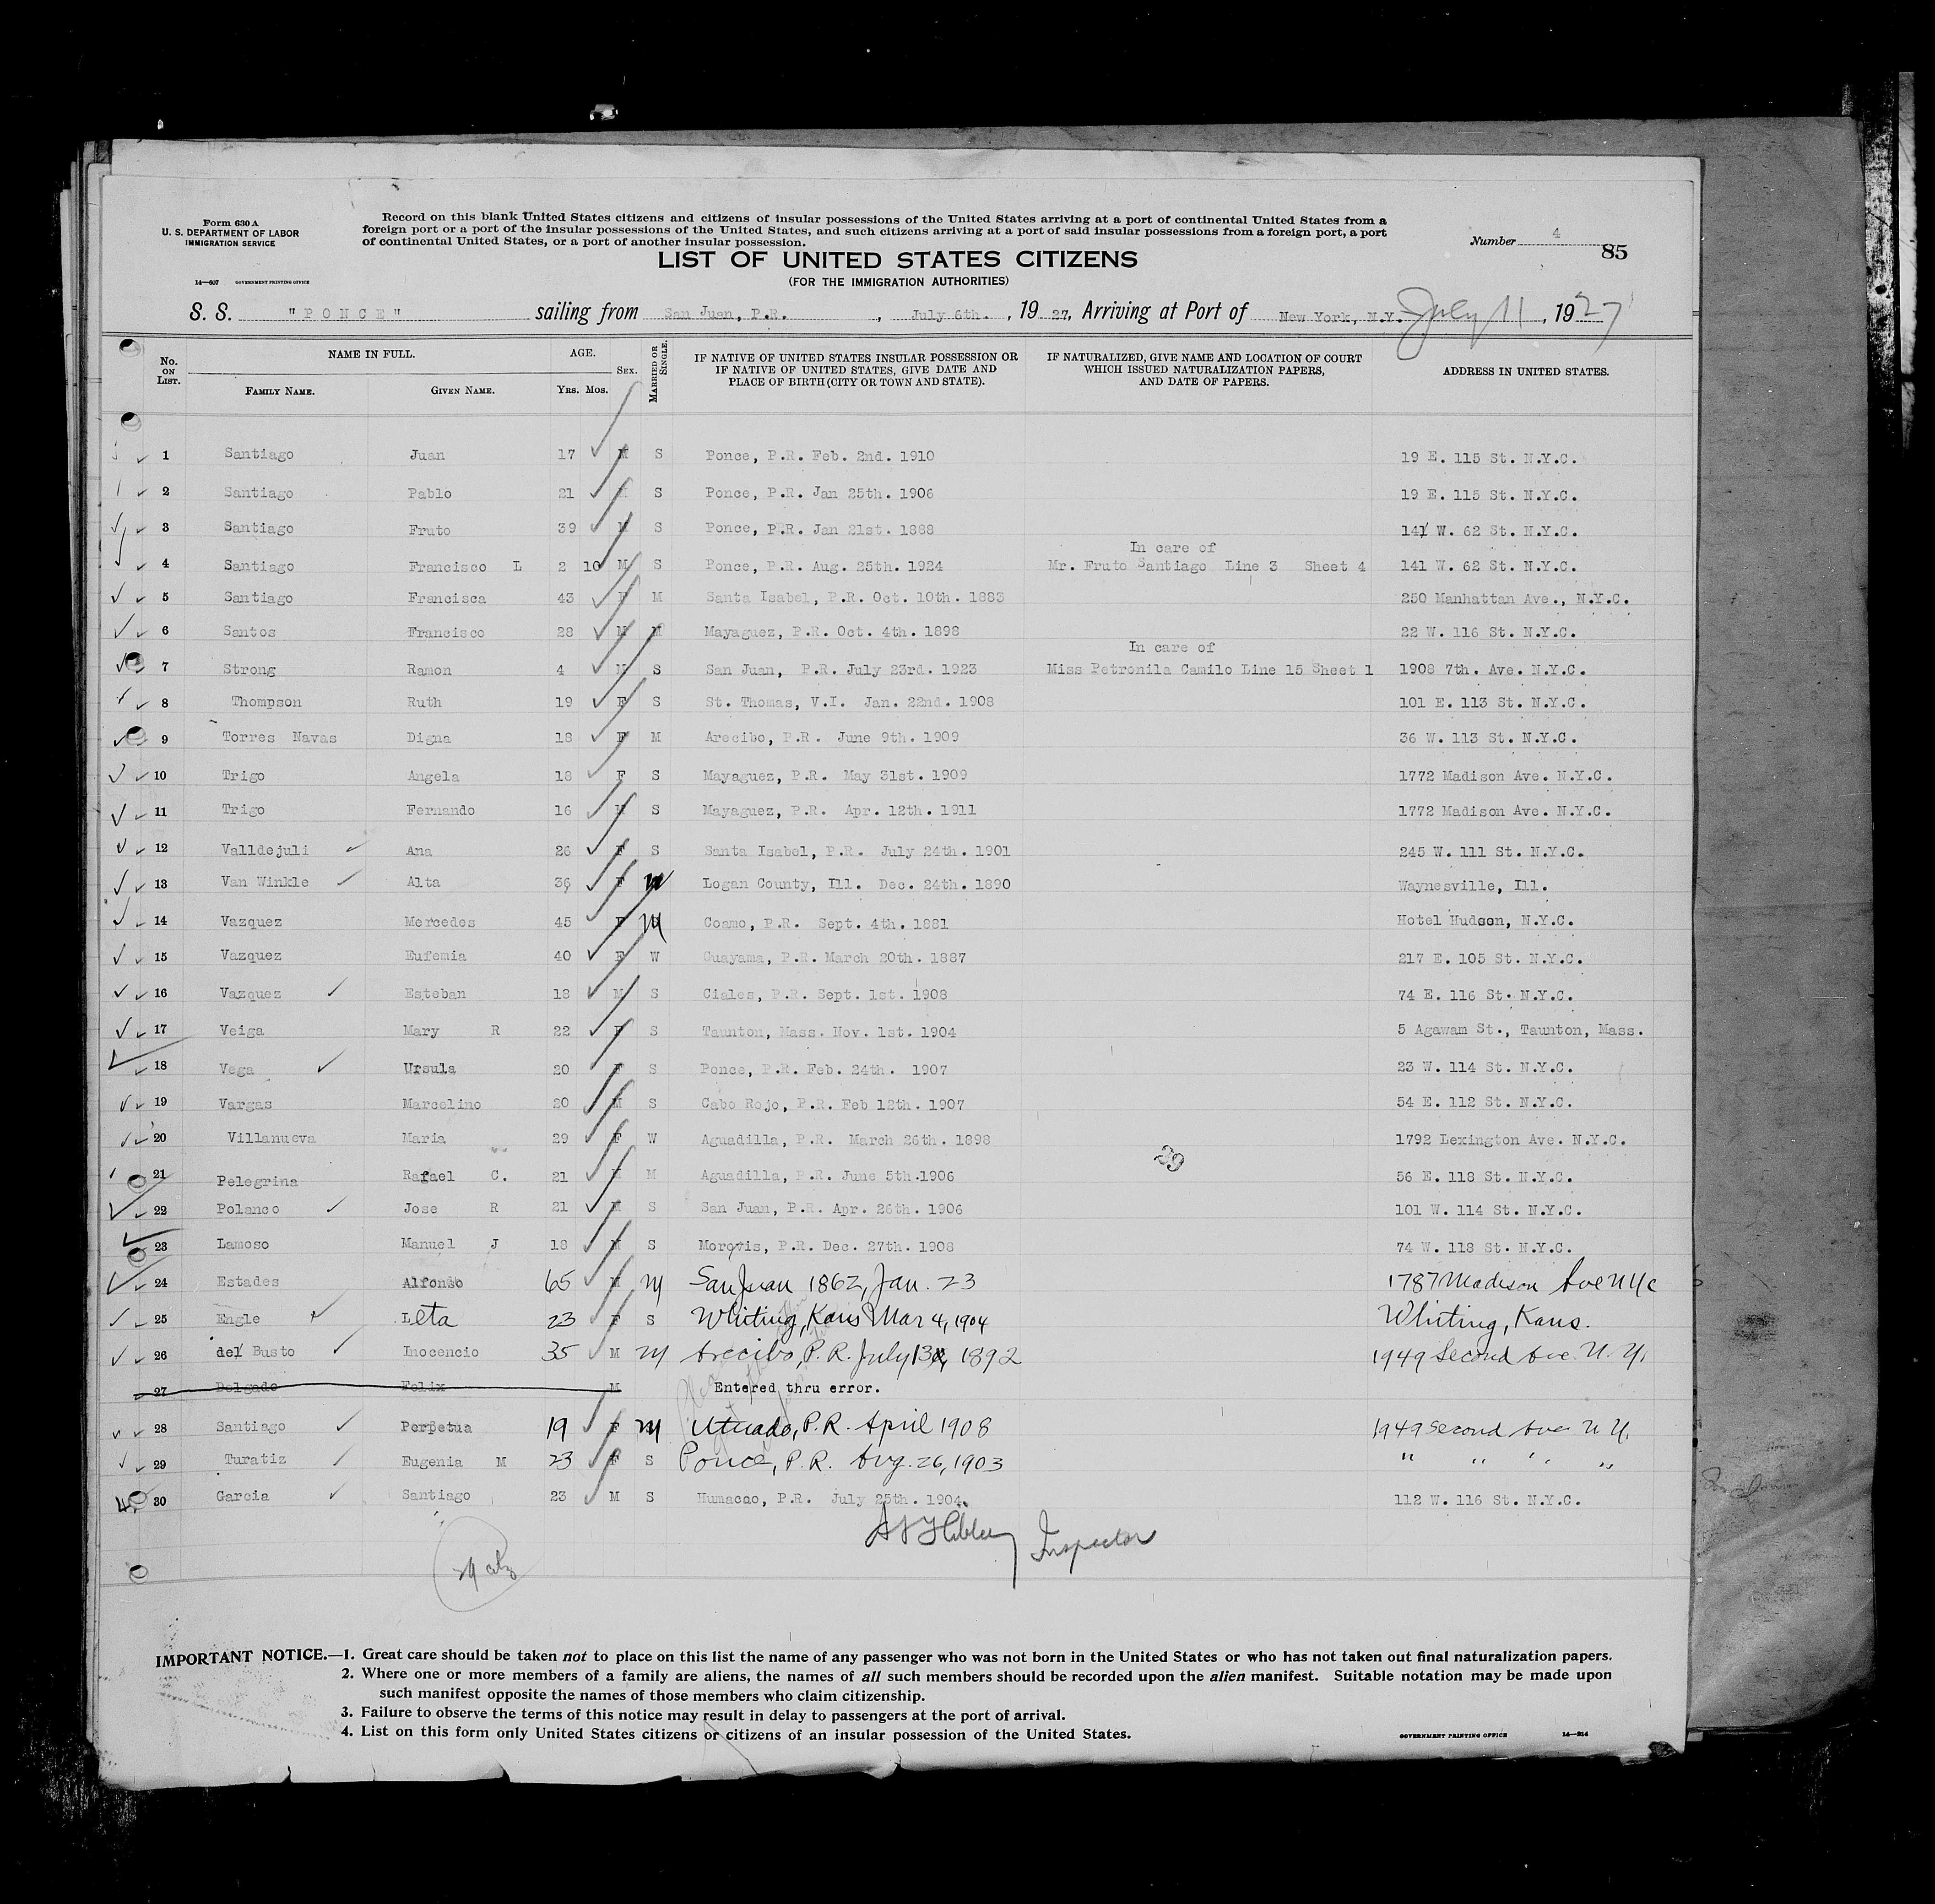 Form 630 A
U. S. DEPARTMENT OF LABOR
IMMIGRATION SERVICE
14—607 GOVERNMENT PRINTING OFFICE
Record on this blank United States citizens and citizens of insular possessions of the United States arriving at a port of continental United States from a
foreign port or a port of the insular possessions of the United States, and such citizens arriving at a port of said insular possessions from a foreign port, a port
of continental United States, or a port of another insular possession.
Number 4
85
LIST OF UNITED STATES CITIZENS
(FOR THE IMMIGRATION AUTHORITIES)
S. S. "PONCE" sailing from San Juan, P.R. , July 6th. , 19 27, Arriving at Port of New York, N.Y. July 11 , 1927
No. ON LIST. NAME IN FULL. FAMILY NAME. GIVEN NAME. AGE. YRS. MOS. SEX. MARRIED OR SINGLE. IF NATIVE OF UNITED STATES INSULAR POSSESSION OR IF NATIVE OF UNITED STATES, GIVE DATE AND PLACE OF BIRTH (CITY OR TOWN AND STATE). IF NATURALIZED, GIVE NAME AND LOCATION OF COURT WHICH ISSUED NATURALIZATION PAPERS, AND DATE OF PAPERS. ADDRESS IN UNITED STATES.
1 Santiago Juan 17 M S Ponce, P.R. Feb. 2nd. 1910 19 E. 115 St. N.Y.C.
2 Santiago Pablo 21 M S Ponce, P.R. Jan 25th. 1906 19 E. 115 St. N.Y.C.
3 Santiago Fruto 39 M S Ponce, P.R. Jan 21st. 1888 141 W. 62 St. N.Y.C.
In care of
4 Santiago Francisco L 2 10 M S Ponce, P.R. Aug. 25th. 1924 Mr. Fruto Santiago Line 3 Sheet 4 141 W. 62 St. N.Y.C.
5 Santiago Francisca 43 F M Santa Isabel, P.R. Oct. 10th. 1883 250 Manhattan Ave., N.Y.C.
6 Santos Francisco 28 M M Mayaguez, P.R. Oct. 4th. 1898 22 W. 116 St. N.Y.C.
In care of
7 Strong Ramon 4 M S San Juan, P.R. July 23rd. 1923 Miss Petronila Camilo Line 15 Sheet 1 1908 7th. Ave. N.Y.C.
8 Thompson Ruth 19 F S St. Thomas, V.I. Jan. 22nd. 1908 101 E. 113 St. N.Y.C.
9 Torres Navas Digna 18 F M Arecibo, P.R. June 9th. 1909 36 W. 113 St. N.Y.C.
10 Trigo Angela 18 F S Mayaguez, P.R. May 31st. 1909 1772 Madison Ave. N.Y.C.
11 Trigo Fernando 16 M S Mayaguez, P.R. Apr. 12th. 1911 1772 Madison Ave. N.Y.C.
12 Valldejuli Ana 26 F S Santa Isabel, P.R. July 24th. 1901 245 W. 111 St. N.Y.C.
13 Van Winkle Alta 36 F M Logan County, Ill. Dec. 24th. 1890 Waynesville, Ill.
14 Vazquez Mercedes 45 F M Coamo, P.R. Sept. 4th. 1881 Hotel Hudson, N.Y.C.
15 Vazquez Eufemia 40 F W Guayama, P.R. March 20th. 1887 217 E. 105 St. N.Y.C.
16 Vazquez Esteban 18 M S Ciales, P.R. Sept. 1st. 1908 74 E. 116 St. N.Y.C.
17 Veiga Mary R 22 F S Taunton, Mass. Nov. 1st. 1904 5 Agawam St., Taunton, Mass.
18 Vega Ursula 20 F S Ponce, P.R. Feb. 24th. 1907 23 W. 114 St. N.Y.C.
19 Vargas Marcelino 20 M S Cabo Rojo, P.R. Feb 12th. 1907 54 E. 112 St. N.Y.C.
20 Villanueva Maria 29 F W Aguadilla, P.R. March 26th. 1898 1792 Lexington Ave. N.Y.C.
29
21 Pelegrina Rafael C. 21 M M Aguadilla, P.R. June 5th.1906 56 E. 118 St. N.Y.C.
22 Polanco Jose R 21 M S San Juan, P.R. Apr. 26th. 1906 101 W. 114 St. N.Y.C.
23 Lamoso Manuel J 18 M S Morovis, P.R. Dec. 27th. 1908 74 W. 118 St. N.Y.C.
24 Estades Alfonso 65 M M San Juan 1862, Jan. 23 1787 Madison Ave NYC
25 Engle Leta 23 F S Whiting, Kans Mar 4, 1904 Whiting, Kans.
26 del Busto Inocencio 35 M M Arecibo, P.R. July 13, 1892 1949 Second Ave. N. Y.
27 Delgado Felix M Entered thru error.
28 Santiago Perpetua 19 F M Utuado, P.R. April 1908 1949 Second Ave N Y.
29 Turatiz Eugenia M 23 F S Ponce, P.R. Aug. 26, 1903 " " " "
30 Garcia Santiago 23 M S Humacao, P.R. July 25th. 1904. 112 W. 116 St. N.Y.C.
Inspector
IMPORTANT NOTICE.—1. Great care should be taken not to place on this list the name of any passenger who was not born in the United States or who has not taken out final naturalization papers.
2. Where one or more members of a family are aliens, the names of all such members should be recorded upon the alien manifest. Suitable notation may be made upon
such manifest opposite the names of those members who claim citizenship.
3. Failure to observe the terms of this notice may result in delay to passengers at the port of arrival.
4. List on this form only United States citizens or citizens of an insular possession of the United States.
GOVERNMENT PRINTING OFFICE 14—914